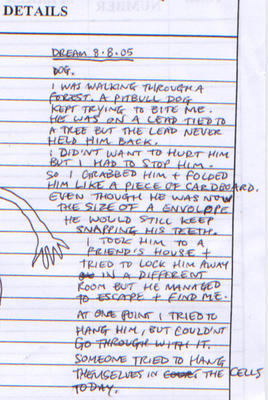 DETAILS
DREAM 8.8.05
DOG.
I WAS WALKING THROUGH A
FOREST. A PITBULL DOG
KEPT TRYING TO BITE ME.
HE WAS ON A LEAD TIED TO
A TREE BUT THE LEAD NEVER
HELD HIM BACK.
I DIDN'T WANT TO HURT HIM
BUT I HAD TO STOP HIM.
SO I GRABBED HIM + FOLDED
HIM LIKE A PIECE OF CARDBOARD.
EVEN THOUGH HE WAS NOW
THE SIZE OF A ENVOLOPE
HE WOULD STILL KEEP
SNAPPING HIS TEETH.
I TOOK HIM TO A
FRIEND'S HOUSE +
TRIED TO LOCK HIM AWAY
IN A DIFFERENT
ROOM BUT HE MANAGED
TO ESCAPE + FIND ME.
AT ONE POINT I TRIED TO
HANG HIM, BUT COULDN'T
GO THROUGH WITH IT.
SOMEONE TRIED TO HANG
THEMSELVES IN THE CELLS
TODAY.